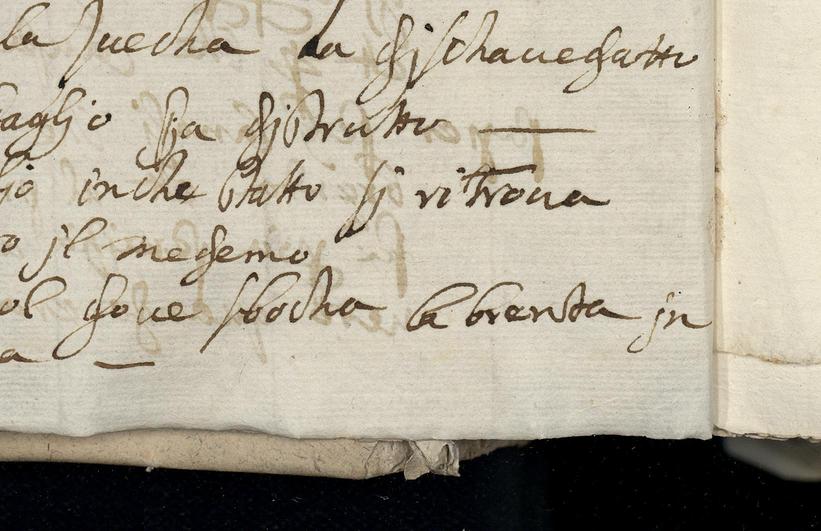 la Suecha da dischauegatto
taglio sia distrutto
in che statto si ritroua
o il medemo
ol doue sbocha la brenta in
a